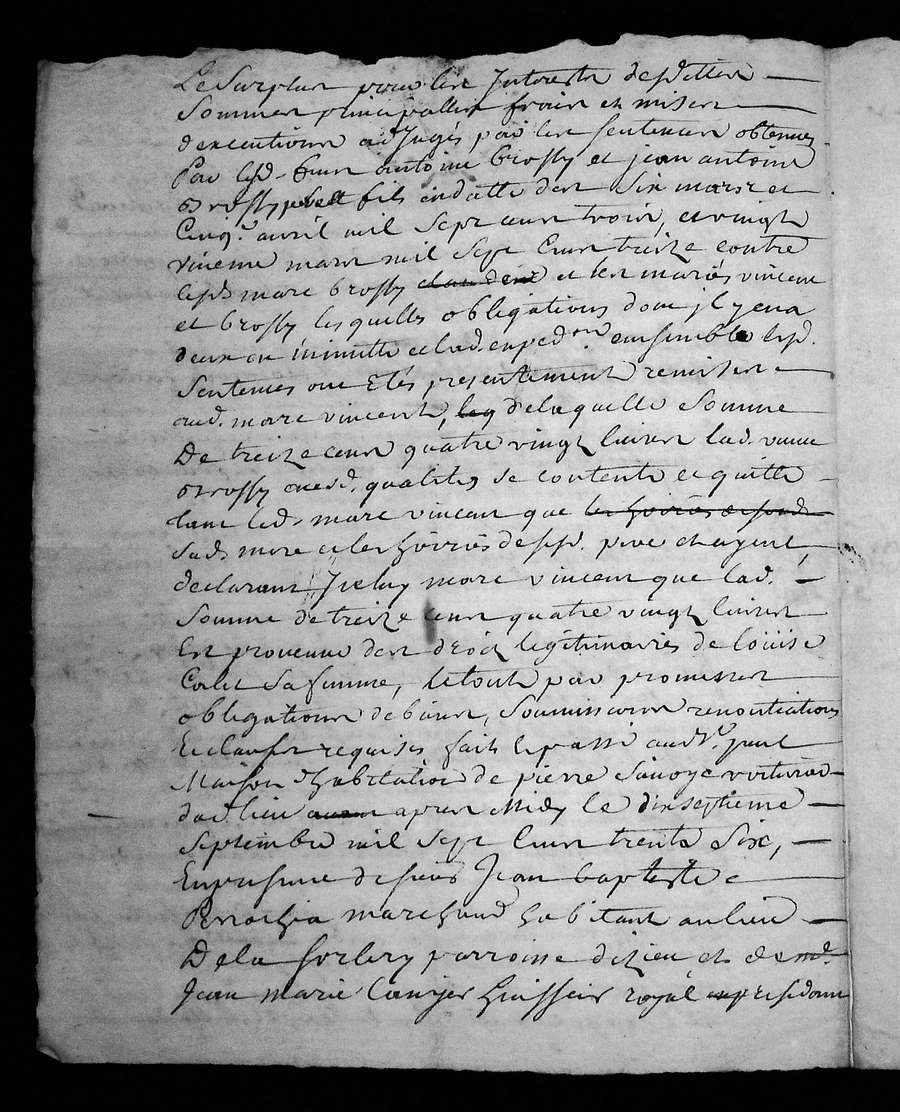 Le Surplus pour les Interests desdittes
Sommes principalles frais et mises
d'executions adJugés par les sentences obtenues
Par lesd. Srs antoine brossy et jean antoine
brossy fils endatte des Six mars et
Cinq.e avril mil Sept cens trois, et vingt
uneme mars mil Sept Cens treize contre
lesd. marc brossy et les mariés vincent
et brossy lesquelles obligations dont jl y en a
deux en minutte et lad. exped.on ensemble lesd.
Sentences ont Etés presentement remises
aud. marc vincent, de laquelle Somme
De treize cens quatre vingt livres lad. vauue
brossy auxd. qualités se contente et quitte
tant led. marc vincent que
sad. mere et les hoiries de sesd. pere et ayeul,
declarant Jceluy marc vincent que lad.
Somme de treize cens quatre vingt livres
Est provenue des droits legitimaires de loüise
Colet Sa femme, Le tout par promesses
obligations de biens, Soumissions renontiations
Et clauses requises fait et passé aud. St. paul
Maison d'habitation de pierre Sauoye voiturier
dud. lieu apres Midy le dixseptieme
Septembre mil Sept Cens trente Six,
En presence de sieurs Jean baptiste
Perrochia marchand habitant au lieu
De la Sorlery parroisse d'izieu et de me.
Jean marie huissier royal residant